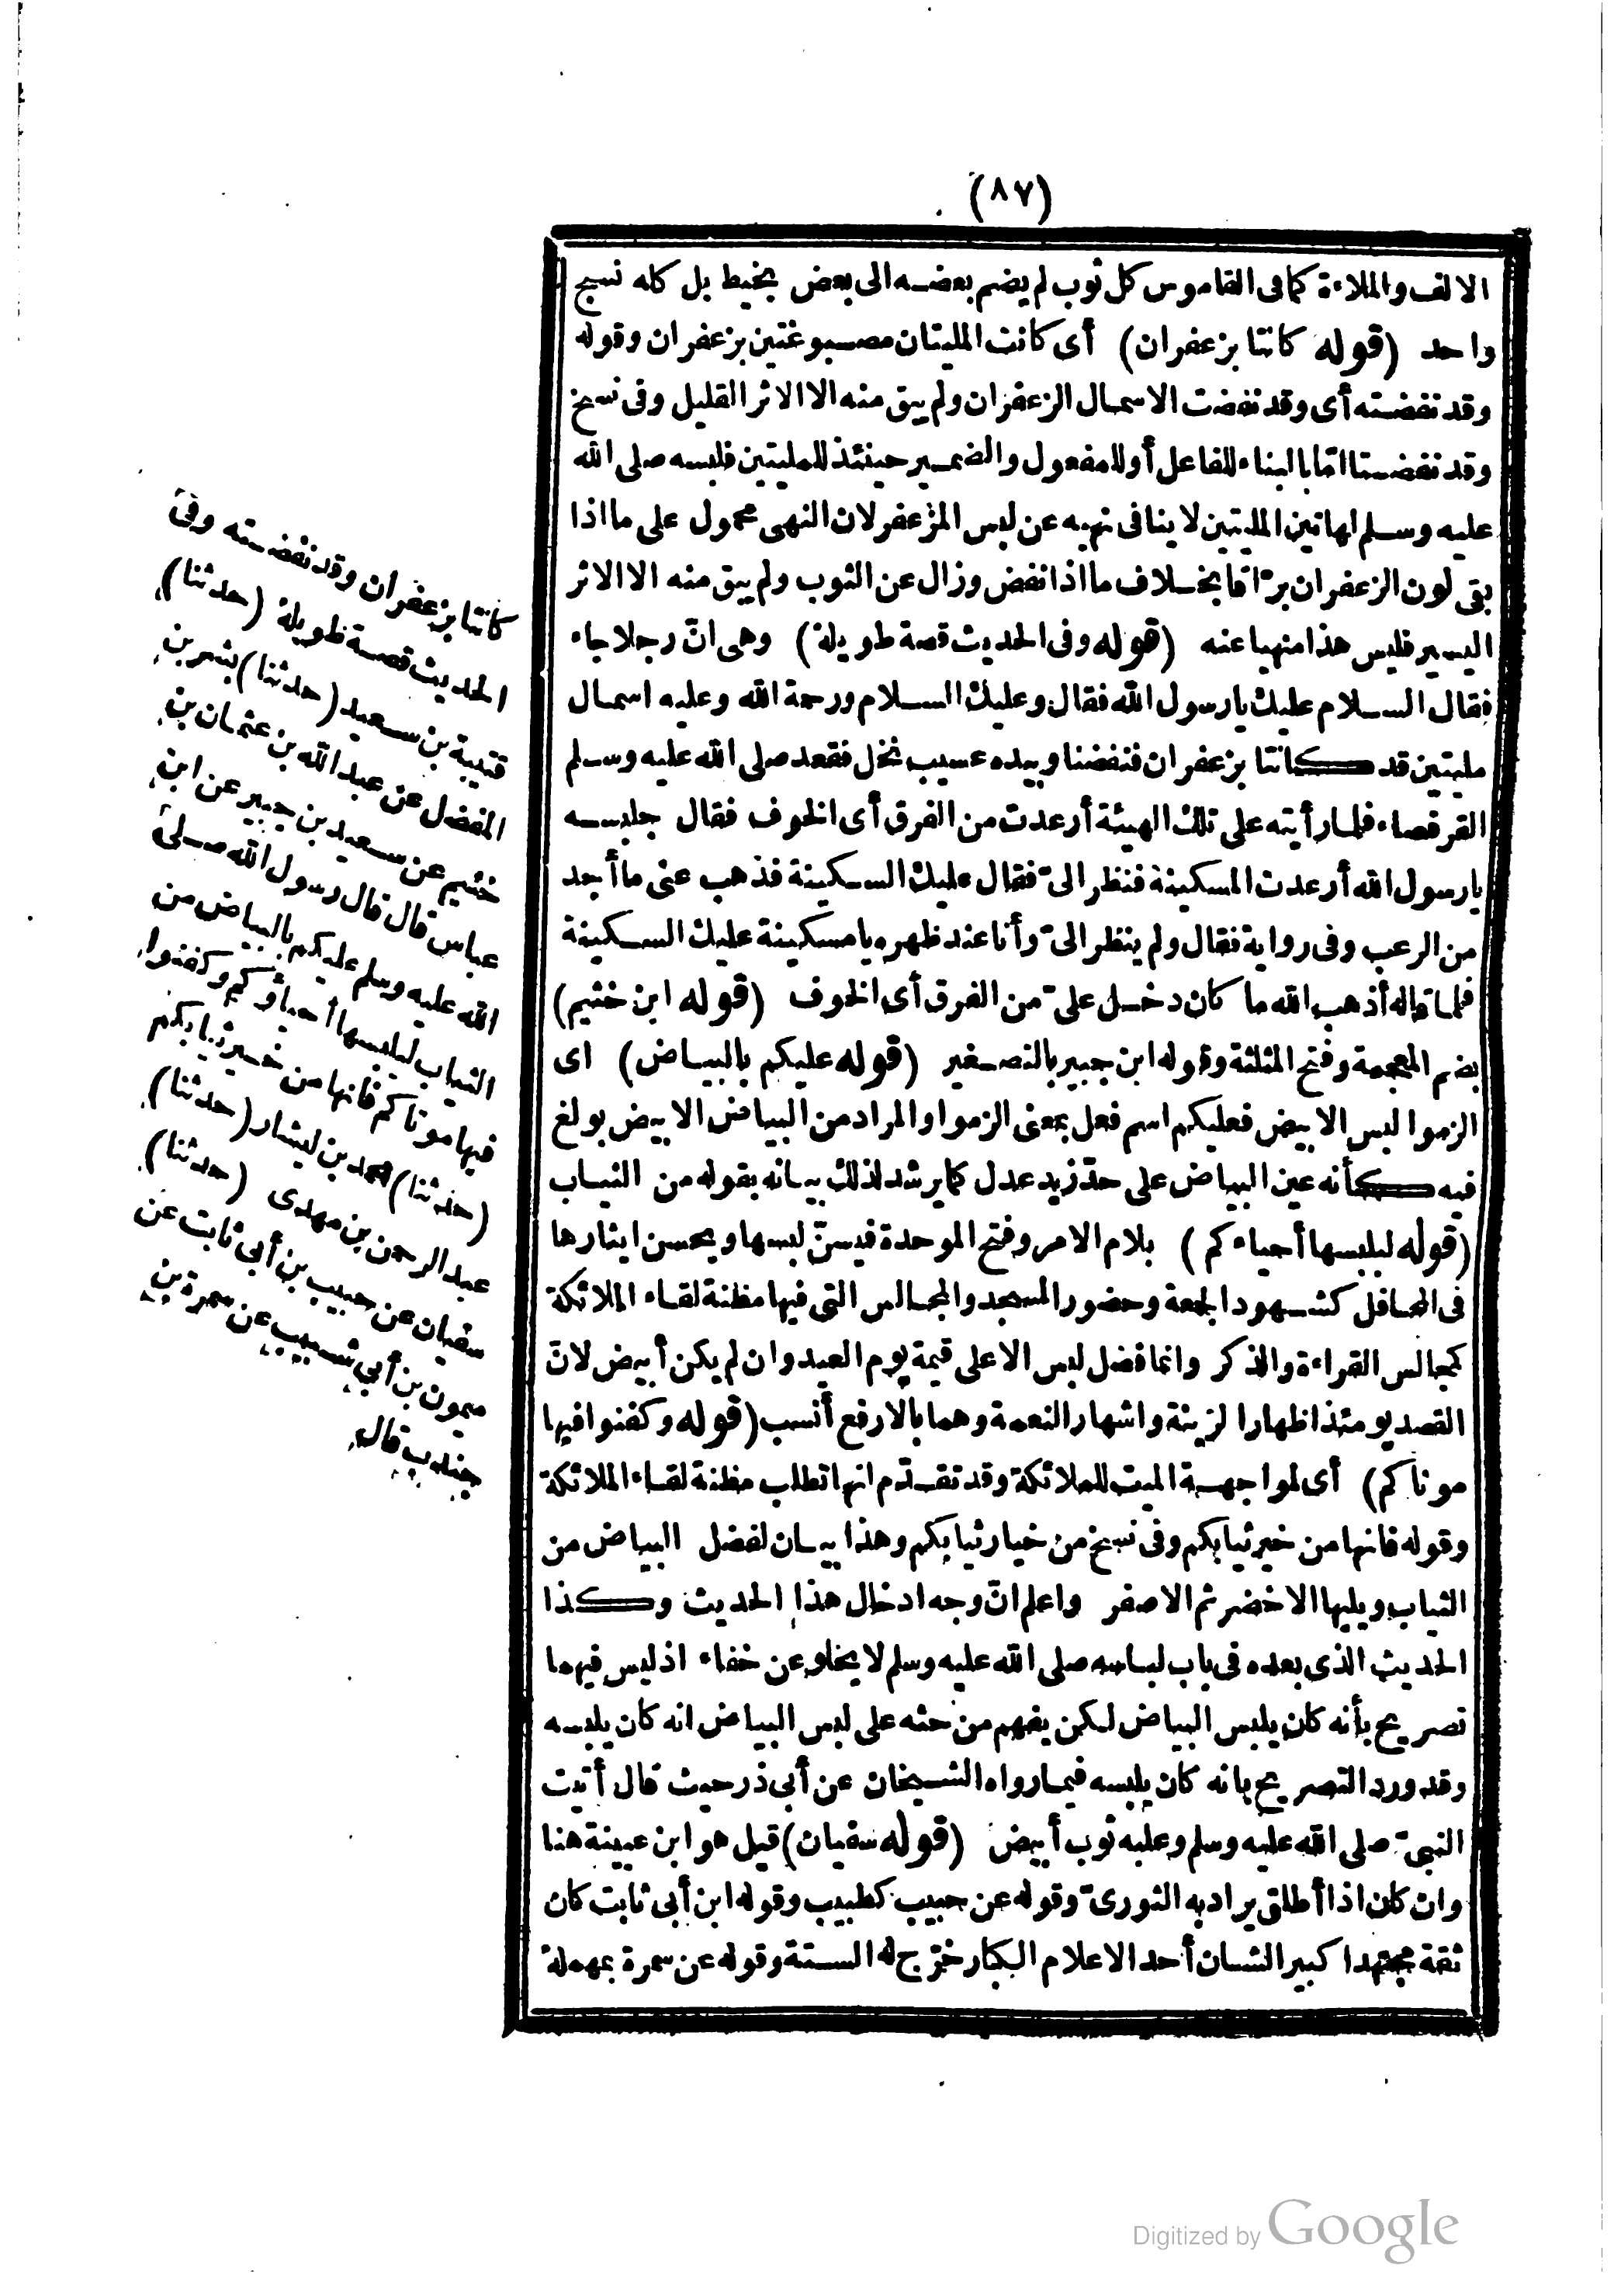 (٨٧)
الالف والملاءة كما فى القاموس كل ثوب لم يضم بعضه الى بعض بخيط بل كله نسج
واحد (قوله كانتا بزعفران) أى كانت المليتان مصبوغتين بزعفران وقوله
وقد نفضته أى وقد نفضت الاسمال الزعفران ولم يبق منه الا الاثر القليل وفى نسخ
وقد نفضتا امّا بالبناء للفاعل أو للمفعول والضمير حينئذ للمليتين فلبسه صلى الله
عليه وسلم لهاتين المليتين لا ينافى نهيه عن لبس المزعفر لان النهى محمول على ما اذا
بقى لون الزعفران برّاقا بخلاف ما اذا نفض وزال عن الثوب ولم يبق منه الا الاثر
اليسير فليس هذا منهيا عنه (قوله وفى الحديث قصة طويلة) وهى انّ رجلا جاء
فقال السلام عليك يا رسول الله فقال وعليك السلام ورحمة الله وعليه اسمال
مليتين قد كانتا بزعفران فنفضنا وبيده عسيب نخل فقعد صلى الله عليه وسلم
القرفصاء فلما رأيته على تلك الهيئة أرعدت من الفرق أى الخوف فقال جليسه
يا رسول الله أرعدت المسكينة فنظر الىّ فقال عليك السكينة فذهب عنى ما أجد
من الرعب وفى رواية فقال ولم ينظر الىّ وأنا عند ظهره يا مسكينة عليك السكينة
فلما قاله أذهب الله ما كان دخل علىّ من الفرق أى الخوف (قوله ابن خثيم)
بضم المعجمة وفتح المثلثة وقوله ابن جبير بالتصغير (قوله عليكم بالبياض) اى
الزموا لبس الابيض فعليكم اسم فعل بمعنى الزموا والمراد من البياض الابيض بولغ
فيه كأنه عين البياض على حدّ زيد عدل كما يرشد لذلك بيانه بقوله من الثياب
(قوله ليلبسها أحياءكم) بلام الامر وفتح الموحدة فيسنّ لبسها ويحسن ايثارها
فى المحافل كشهود الجمعة وحضور المسجد والمجالس التى فيها مظنة لقاء الملائكة
كمجالس القراءة والذكر وانما فضل لبس الاعلى قيمة يوم العيد وان لم يكن أبيض لانّ
القصد يومئذ اظهار الزينة واشهار النعمة وهما بالارفع أنسب (قوله وكفنوا فيها
موتاكم) أى لمواجهة الميت للملائكة وقد تقدّم انها تطلب مظنة لقاء الملائكة
وقوله فانها من خير ثيابكم وفى نسخ من خيار ثيابكم وهذا بيان لفضل البياض من
الثياب ويليها الاخضر ثم الاصفر واعلم انّ وجه ادخال هذا الحديث وكذا
الحديث الذى بعده فى باب لباسه صلى الله عليه وسلم لا يخلو عن خفاء اذ ليس فيهما
تصريح بأنه كان يلبس البياض لكن يفهم من حثه على لبس البياض انه كان يلبسه
وقد ورد التصريح بانه كان يلبسه فيما رواه الشيخان عن أبى ذر حيث قال أتيت
النبىّ صلى الله عليه وسلم وعليه ثوب أبيض (قوله سفيان) قيل هو ابن عيينة هنا
وان كان اذا أطلق يراد به الثورىّ وقوله عن حبيب كطبيب وقوله ابن أبى ثابت كان
ثقة مجتهدا كبير الشان أحد الاعلام الكبار خرّج له الستة وقوله عن سمرة بمهملة
كانتا بزعفران وقد نفضته وفى
الحديث قصة طويلة (حدثنا)
قتيبة بن سعيد (حدثنا) بشر بن
المفضل عن عبد الله بن عثمان بن
خثيم عن سعيد بن جبير عن ابن
عباس قال قال رسول الله صلى
الله عليه وسلم عليكم بالبياض من
الثياب ليلبسها أحياؤكم وكفنوا
فيها موتاكم فانها من خير ثيابكم
(حدثنا) محمد بن بشار (حدثنا)
عبد الرحمن بن مهدى (حدثنا)
سفيان عن حبيب بن أبى ثابت عن
ميمون بن أبى شبيب عن سمرة بن
جندب قال
Digitized by Google